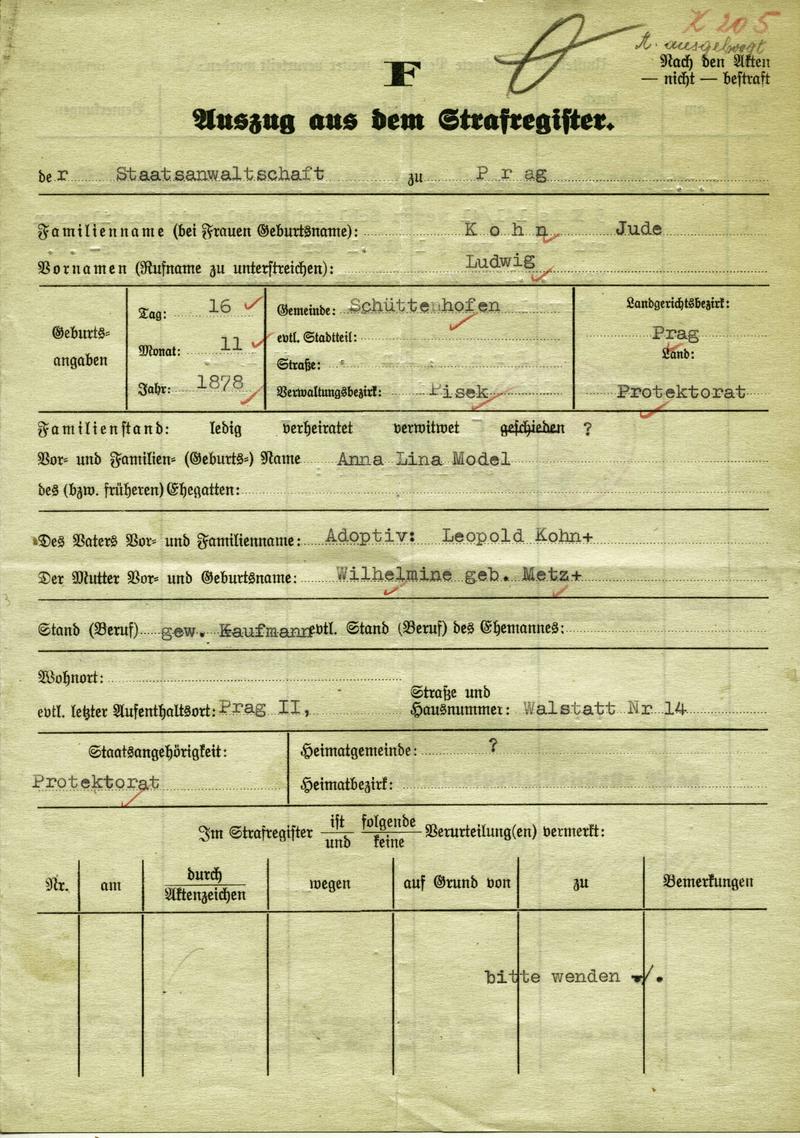 K 205
A. ausgelegt
F
Nach den Akten
— nicht — bestraft
Auszug aus dem Strafregister.
der Staatsanwaltschaft zu P r ag
Familienname (bei Frauen Geburtsname): K o h n Jude
Vornamen (Rufname zu unterstreichen): Ludwig
Geburts=
angaben
Tag: 16
Monat: 11
Jahr: 1878
Gemeinde: Schüttenhofen
evtl. Stadtteil:
Straße:
Verwaltungsbezirk: Pisek
Landgerichtsbezirk:
Prag
Land:
Protektorat
Familienstand: ledig verheiratet verwitwet geschieden ?
Vor= und Familien= (Geburts=) Name Anna Lina Model
des (bzw. früheren) Ehegatten:
Des Vaters Vor= und Familienname: Adoptiv: Leopold Kohn+
Der Mutter Vor= und Geburtsname: Wilhelmine geb. Metz+
Stand (Beruf) gew. Kaufmann evtl. Stand (Beruf) des Ehemannes:
Wohnort:
evtl. letzter Aufenthaltsort: Prag II,
Straße und
Hausnummer: Walstatt Nr 14
Staatsangehörigkeit:
Protektorat
Heimatgemeinde: ?
Heimatbezirk:
Im Strafregister ist/und folgende/keine Verurteilung(en) vermerkt:
Nr. am durch/Aktenzeichen wegen auf Grund von zu Bemerkungen
bitte wenden ./.